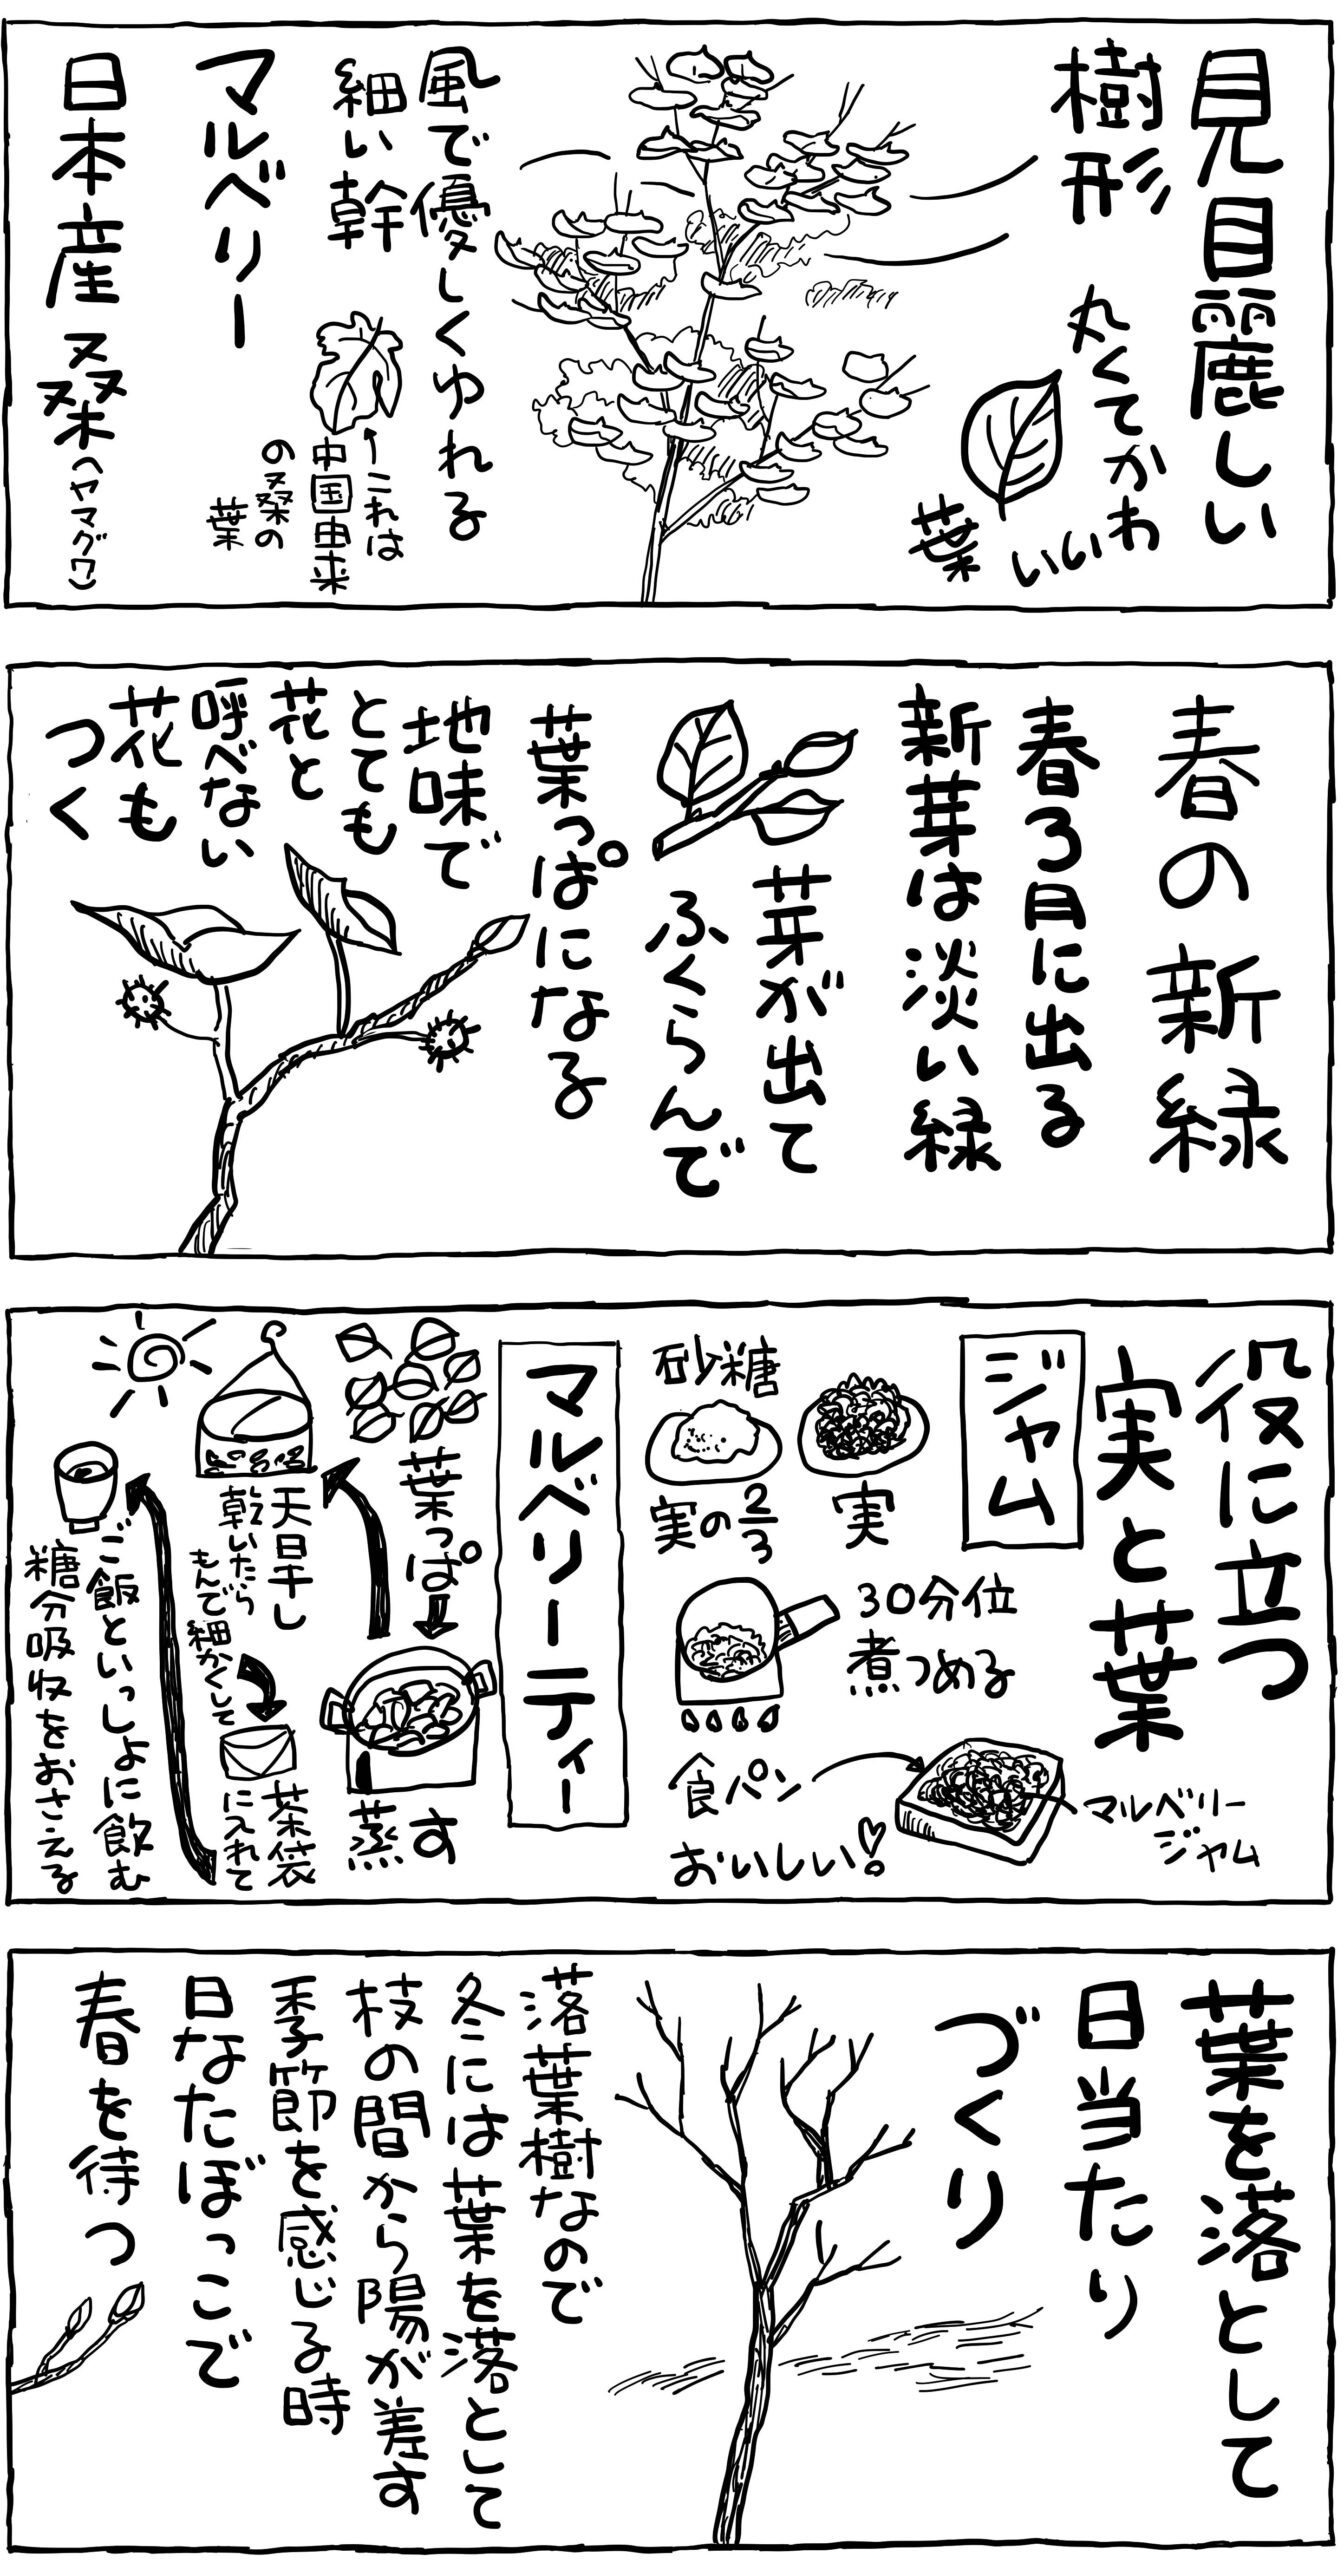 見目麗しい
樹形
丸くてかわ
いい
葉
風で優しくゆれる
細い幹
マルベリー
←これは
中国由来
の桑の
葉
日本産桑(ヤマグワ)
春の新緑
春3月に出る
新芽は淡い緑
芽が出て
ふくらんで
葉っぱになる
地味で
とても
花と
呼べない
花も
つく
役に立つ
実と葉
ジャム
実
砂糖
実の2/3
30分位
煮つめる
食パン
マルベリー
ジャム
おいしい♡
マルベリーティー
葉っぱ
蒸す
天日干し
乾いたら
もんで細かくして
茶袋
に入れて
ご飯といっしょに飲む
糖分吸収をおさえる
葉を落として
日当たり
づくり
落葉樹なので
冬には葉を落として
枝の間から陽が差す
季節を感じる時
日なたぼっこで
春を待つ